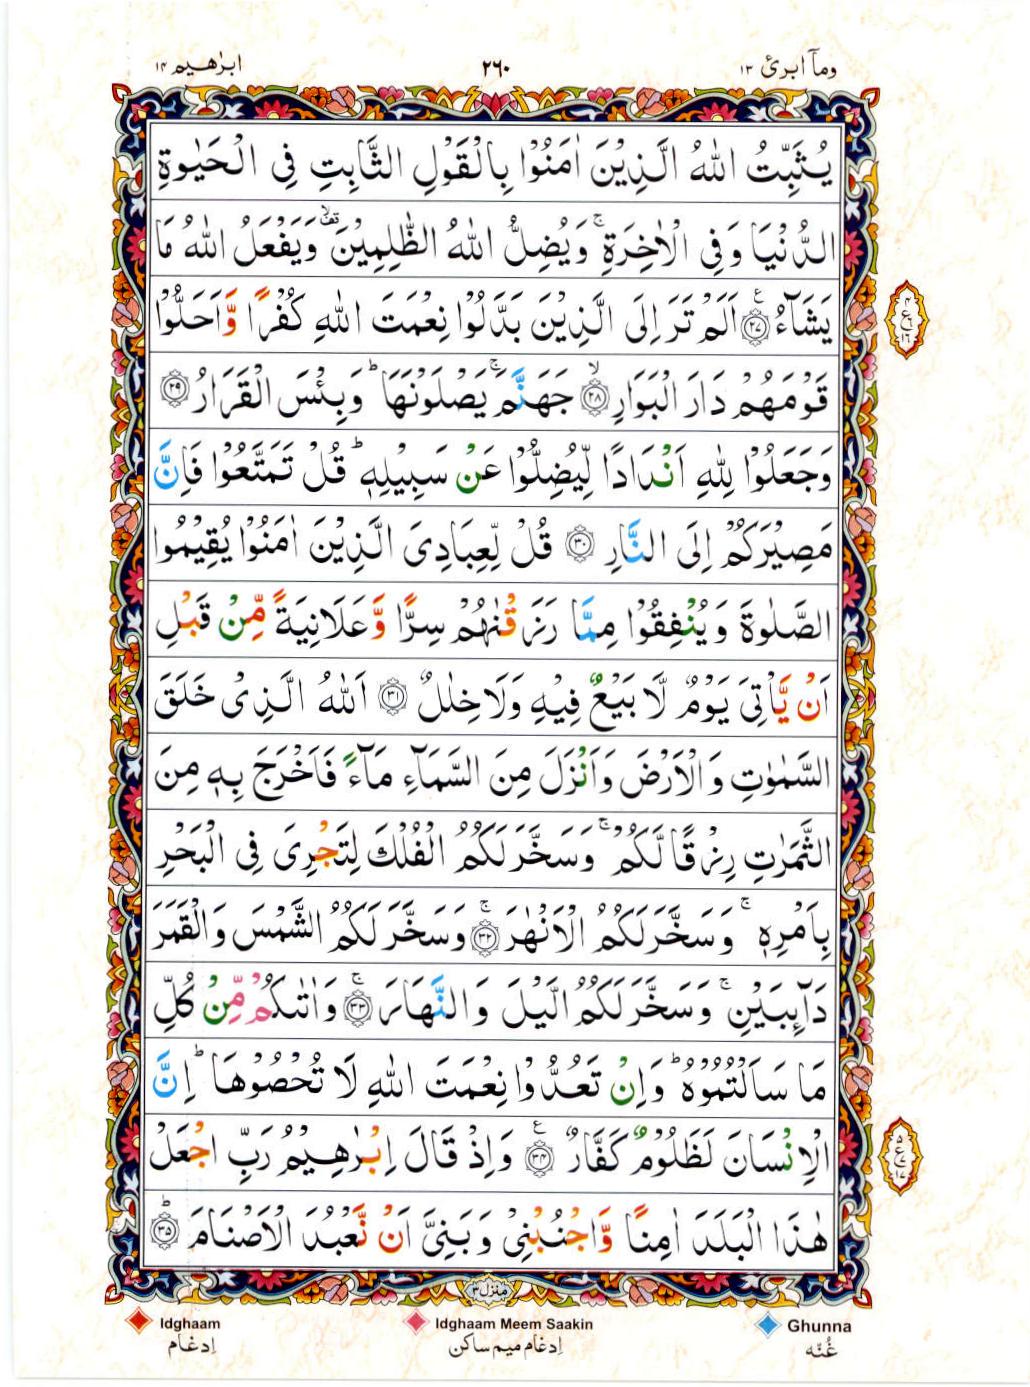 ابرٰهيم ١٤
٢٦٠
ومآ ابرئ ١٣
يُثَبِّتُ اللّٰهُ الَّذِيْنَ اٰمَنُوْا بِالْقَوْلِ الثَّابِتِ فِى الْحَيٰوةِ
الدُّنْيَا وَفِى الْاٰخِرَةِ ۚ وَيُضِلُّ اللّٰهُ الظّٰلِمِيْنَ ۙ وَيَفْعَلُ اللّٰهُ مَا
يَشَآءُ ﴿٢٧﴾ اَلَمْ تَرَ اِلَى الَّذِيْنَ بَدَّلُوْا نِعْمَتَ اللّٰهِ كُفْرًا وَّاَحَلُّوْا
قَوْمَهُمْ دَارَ الْبَوَارِ ۙ﴿٢٨﴾ جَهَنَّمَ ۚ يَصْلَوْنَهَا ؕ وَبِئْسَ الْقَرَارُ ﴿٢٩﴾
وَجَعَلُوْا لِلّٰهِ اَنْدَادًا لِّيُضِلُّوْا عَنْ سَبِيْلِهٖ ؕ قُلْ تَمَتَّعُوْا فَاِنَّ
مَصِيْرَكُمْ اِلَى النَّارِ ﴿٣٠﴾ قُلْ لِّعِبَادِىَ الَّذِيْنَ اٰمَنُوْا يُقِيْمُوا
الصَّلٰوةَ وَيُنْفِقُوْا مِمَّا رَزَقْنٰهُمْ سِرًّا وَّعَلَانِيَةً مِّنْ قَبْلِ
اَنْ يَّاْتِىَ يَوْمٌ لَّا بَيْعٌ فِيْهِ وَلَا خِلٰلٌ ﴿٣١﴾ اَللّٰهُ الَّذِىْ خَلَقَ
السَّمٰوٰتِ وَالْاَرْضَ وَاَنْزَلَ مِنَ السَّمَآءِ مَآءً فَاَخْرَجَ بِهٖ مِنَ
الثَّمَرٰتِ رِزْقًا لَّكُمْ ۚ وَسَخَّرَ لَكُمُ الْفُلْكَ لِتَجْرِىَ فِى الْبَحْرِ
بِاَمْرِهٖ ۚ وَسَخَّرَ لَكُمُ الْاَنْهٰرَ ۚ﴿٣٢﴾ وَسَخَّرَ لَكُمُ الشَّمْسَ وَالْقَمَرَ
دَآئِبَيْنِ ۚ وَسَخَّرَ لَكُمُ الَّيْلَ وَالنَّهَارَ ۚ﴿٣٣﴾ وَاٰتٰىكُمْ مِّنْ كُلِّ
مَا سَاَلْتُمُوْهُ ؕ وَاِنْ تَعُدُّوْا نِعْمَتَ اللّٰهِ لَا تُحْصُوْهَا ؕ اِنَّ
الْاِنْسَانَ لَظَلُوْمٌ كَفَّارٌ ﴿٣٤﴾ وَاِذْ قَالَ اِبْرٰهِيْمُ رَبِّ اجْعَلْ
هٰذَا الْبَلَدَ اٰمِنًا وَّاجْنُبْنِىْ وَبَنِىَّ اَنْ نَّعْبُدَ الْاَصْنَامَ ؕ﴿٣٥﴾
منزل ٣
Idghaam
اِدغام
Idghaam Meem Saakin
اِدغام ميم ساكن
Ghunna
غُنّه